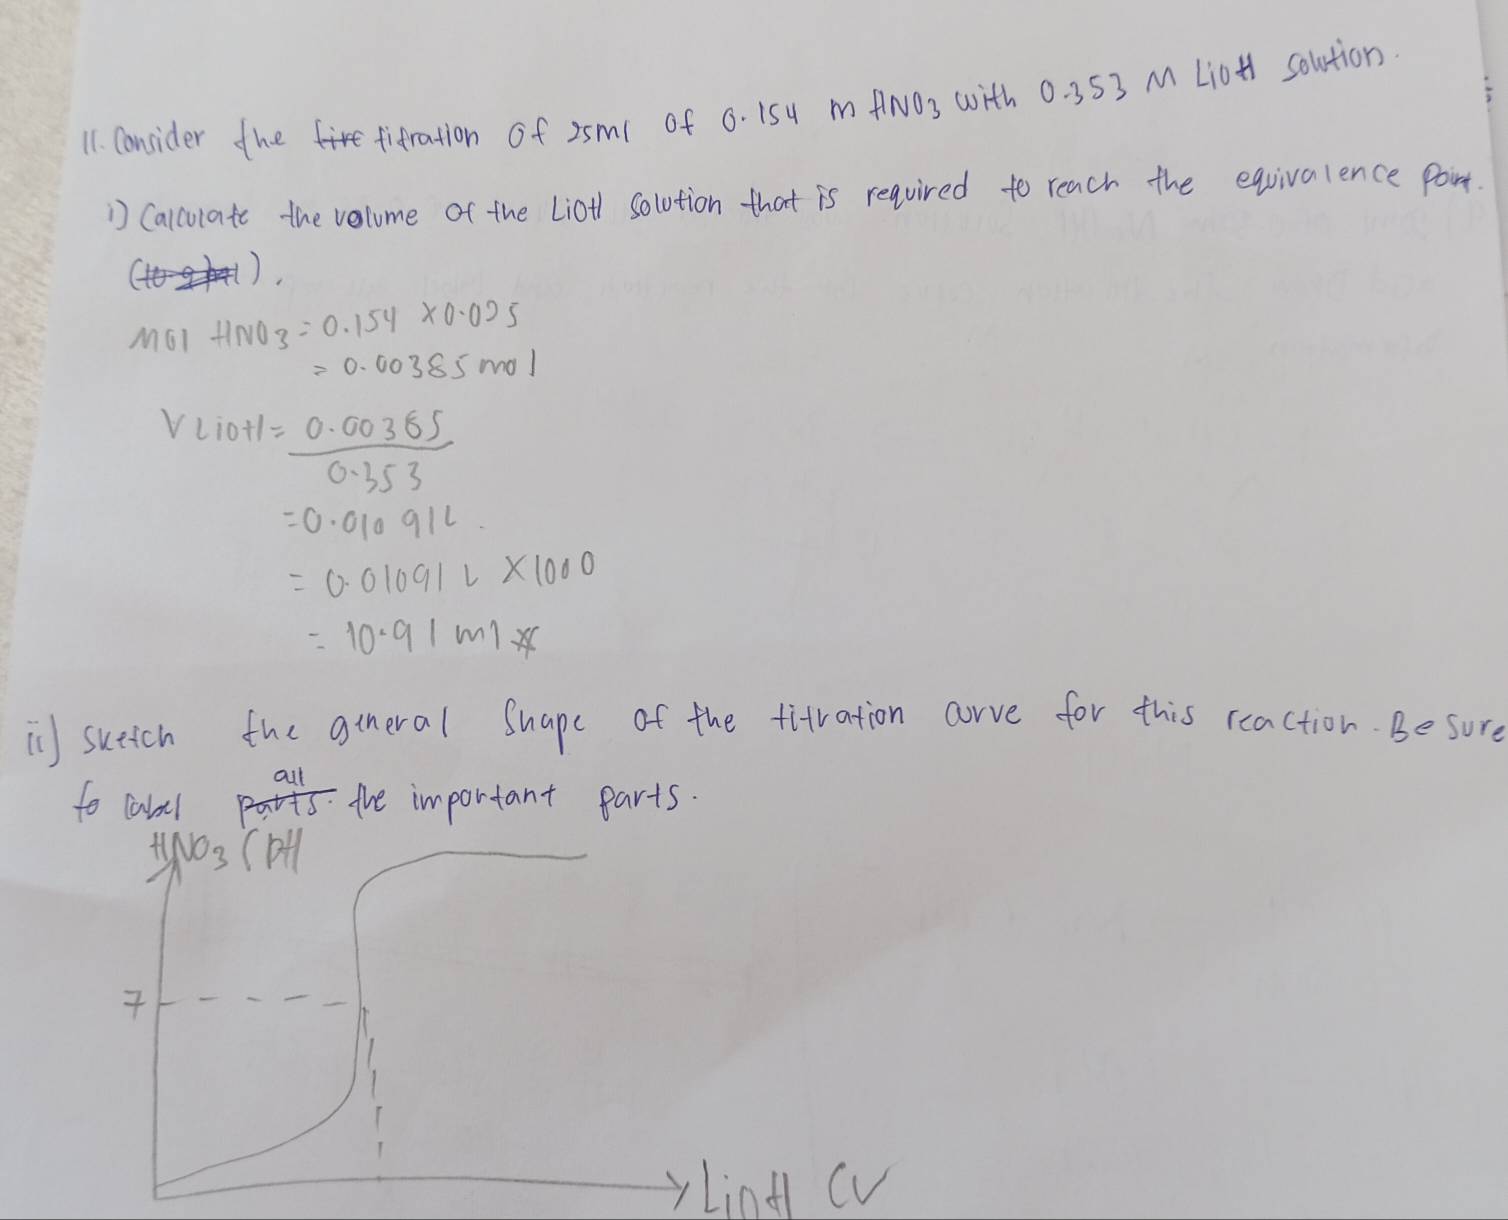 11. Consider the titre titration of 25ml of 0.154 m HNO3 with 0.353 M LiOH solution.
i) Calculate the volume of the LiOH solution that is required to reach the equivalence point.
Mol HNO3 = 0.154 x 0.025
= 0.00385 mol
V LiOH = 0.00385
0.353
= 0.01091L.
= 0.01091 L x 1000
= 10.91 ml
ii) sketch the general shape of the titration curve for this reaction. Be sure
to label parts. all the important parts.
HNO3 (pH
7
LiOH (V